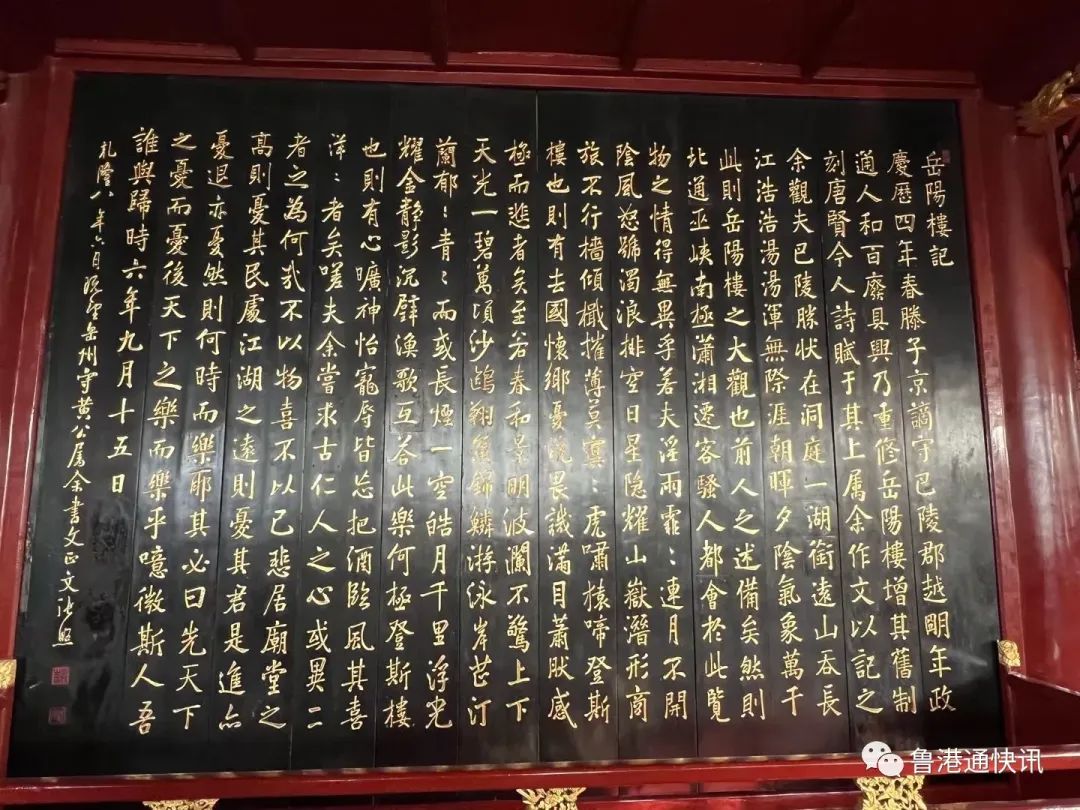 岳陽樓記
慶曆四年春滕子京謫守巴陵郡越明年政
通人和百廢具興乃重修岳陽樓增其舊制
刻唐賢今人詩賦于其上属余作文以記之
余觀夫巴陵勝状在洞庭一湖銜遠山吞長
江浩浩湯湯渾無際涯朝暉夕陰氣象萬千
此則岳陽樓之大觀也前人之述備矣然則
北通巫峽南極瀟湘遷客騷人都會於此覽
物之情得無異乎若夫淫雨霏〻連月不開
陰風怒號濁浪排空日星隐耀山嶽潛形商
旅不行檣傾檝摧薄莫冥〻虎嘯猿啼登斯
樓也則有去國懷鄉憂讒畏譏滿目蕭然感
極而悲者矣至若春和景明波瀾不驚上下
天光一碧萬頃沙鷗翔集錦鱗游泳岸芷汀
蘭郁〻青〻而或長煙一空皓月千里浮光
耀金靜影沉璧漁歌互答此樂何極登斯樓
也則有心曠神怡寵辱皆忘把酒臨風其喜
洋〻者矣嗟夫余嘗求古仁人之心或異二
者之為何哉不以物喜不以己悲居廟堂之
高則憂其民處江湖之遠則憂其君是進亦
憂退亦憂然則何時而樂耶其必曰先天下
之憂而憂後天下之樂而樂乎噫微斯人吾
誰與歸時六年九月十五日
乾隆八年六月既望岳州守黄公属余書文正文张照
鲁港通快讯